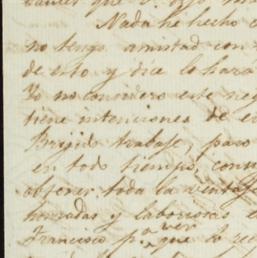 Nada he hecho
no tengo amistad con
de esto y dice lo hará
Yo no considero este
tiene intenciones de
Brijido trabaje, para
en todo tiempo, con
obtener toda la ventaja
honradas y laboriosas
Francisco pa ver que lo